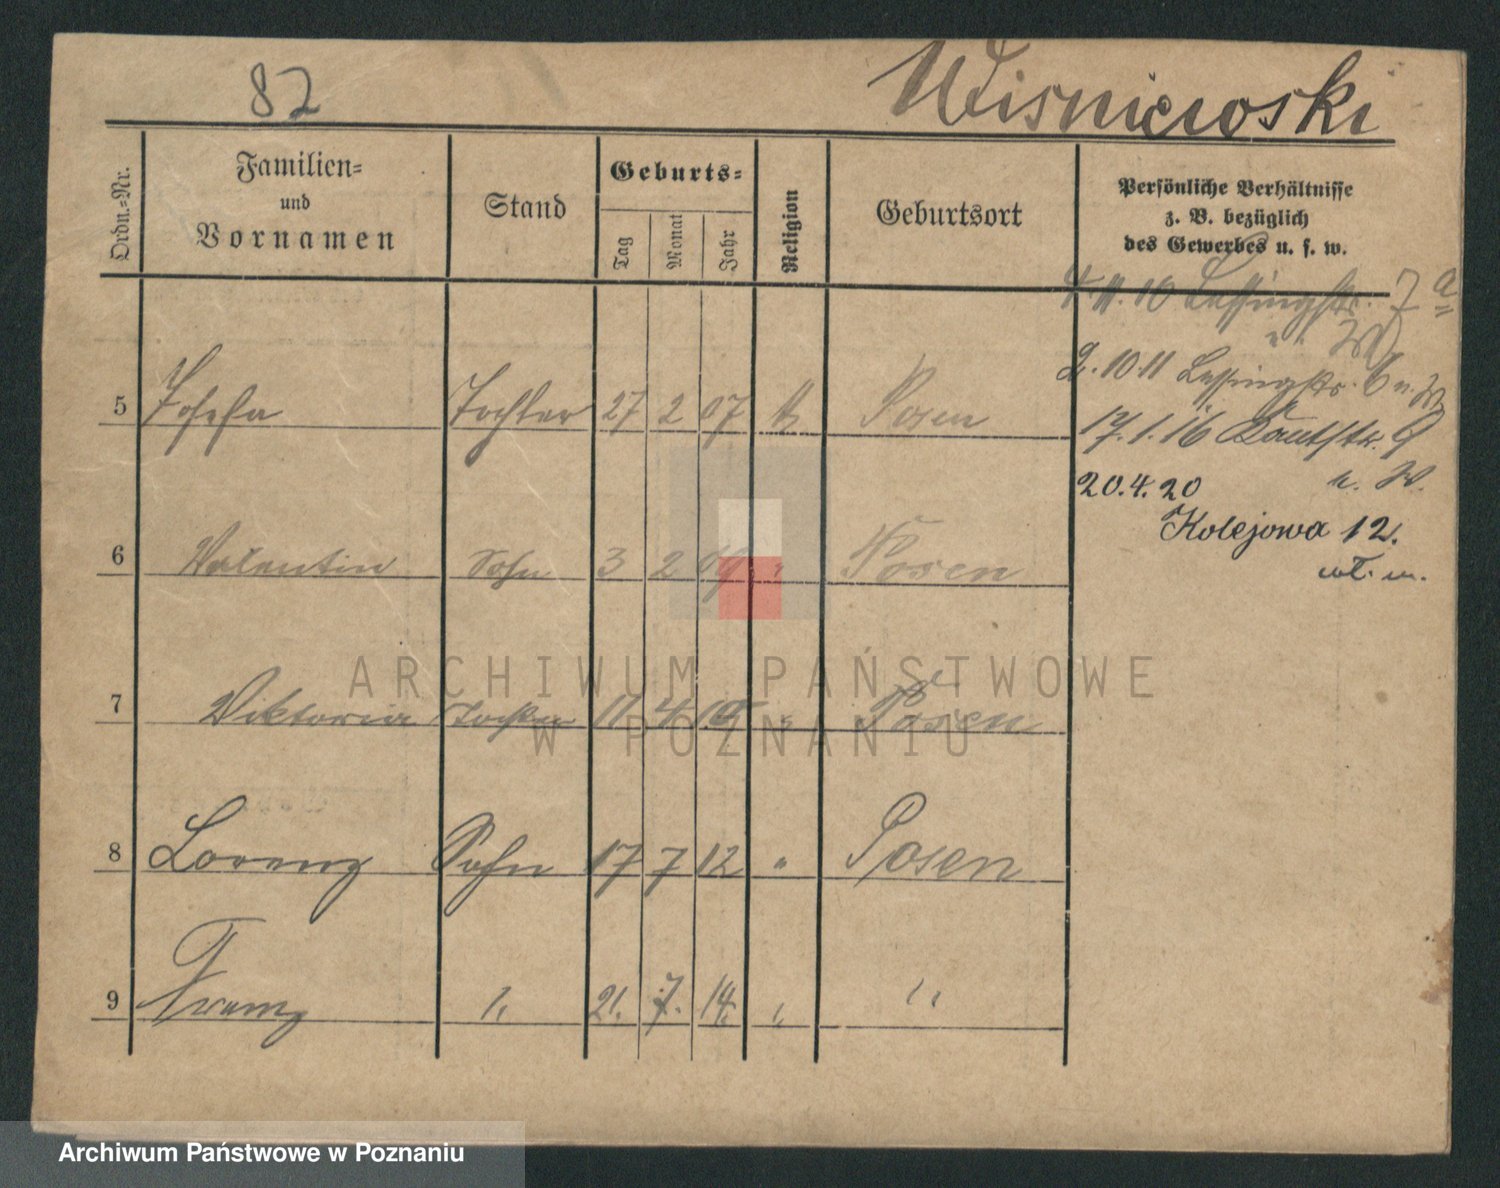 82
Wisniewski
Ordn.-Nr.
Familien-
und
Vornamen
Stand
Geburts-
Tag
Monat
Jahr
Religion
Geburtsort
Persönliche Verhältnisse
z. B. bezüglich
des Gewerbes u. s. w.
4.11.10 Lessingstr. 7a
2.10.11 Lessingstr. 6 u. W
5 Josefa Tochter 27 2 07 Posen
17.1.16 Kantstr. 9
u. W.
20.4.20
Kolejowa 12.
wł. m.
6 Valentin Sohn 3 2 09 " Posen
7 Viktoria Tochter 11 4 10 " Posen
8 Lorenz Sohn 17 7 12 " Posen
9 Franz " 21. 7. 14. " "
ARCHIWUM PAŃSTWOWE
W POZNANIU
Archiwum Państwowe w Poznaniu